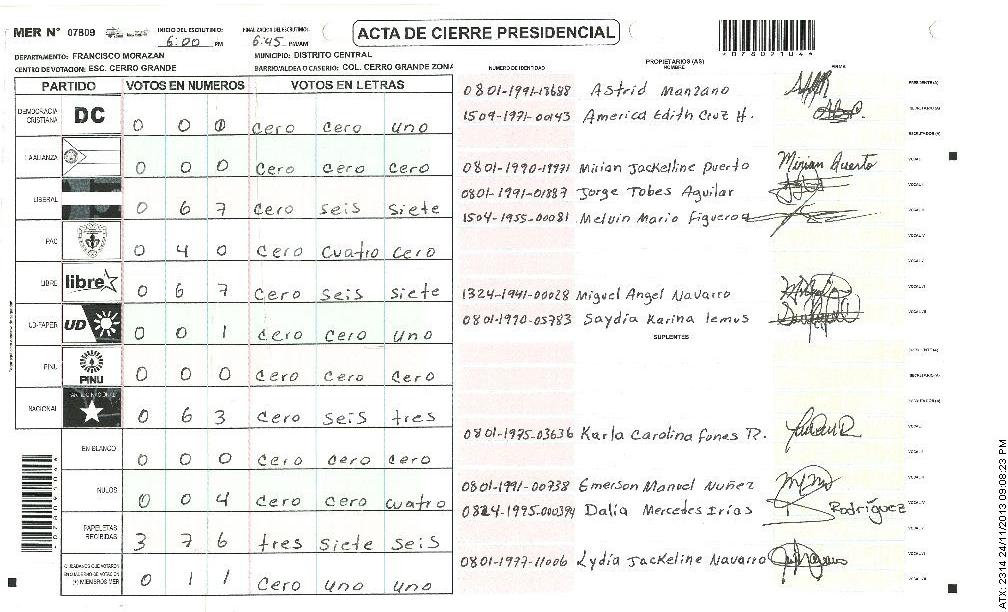 MER N° 07809 INICIO DEL ESCRUTINIO: 6:00 PM FINALIZACION DEL ESCRUTINIO: 6:45 PM/AM
ACTA DE CIERRE PRESIDENCIAL
DEPARTAMENTO: FRANCISCO MORAZAN MUNICIPIO: DISTRITO CENTRAL
CENTRO DE VOTACION: ESC. CERRO GRANDE BARRIO/ALDEA O CASERIO: COL. CERRO GRANDE ZONA
PARTIDO VOTOS EN NUMEROS VOTOS EN LETRAS
DEMOCRACIA CRISTIANA DC 0 0 1 cero cero uno
LA ALIANZA 0 0 0 cero cero cero
LIBERAL 0 6 7 cero seis siete
PAC 0 4 0 cero cuatro cero
LIBRE libre 0 6 7 cero seis siete
UD-FAPER UD 0 0 1 cero cero uno
PINU PINU 0 0 0 cero cero cero
NACIONAL 0 6 3 cero seis tres
EN BLANCO 0 0 0 cero cero cero
NULOS 0 0 4 cero cero cuatro
PAPELETAS RECIBIDAS 3 7 6 tres siete seis
CIUDADANOS QUE VOTARON
EN CUADERNO DE VOTACION
(+) MIEMBROS MER 0 1 1 cero uno uno
NUMERO DE IDENTIDAD PROPIETARIOS (AS) NOMBRE FIRMA
0801-1991-13688 Astrid Manzano PRESIDENTE(A)
1509-1971-00143 America Edith Cruz H. SECRETARIO(A)
ESCRUTADOR(A)
0801-1990-19971 Mirian Jackelline Puerto Mirian Puerto VOCAL I
0801-1991-01887 Jorge Tobes Aguilar VOCAL II
1504-1955-00081 Melvin Mario Figueroa VOCAL III
VOCAL IV
VOCAL V
1324-1941-00028 Miguel Angel Navarro VOCAL VI
0801-1970-05783 Saydia Karina lemus VOCAL VII
SUPLENTES
SECRETARIO(A)
ESCRUTADOR(A)
0801-1975-03636 Karla Carolina funes R. VOCAL I
VOCAL II
0801-1991-00738 Emerson Manuel Nuñez
0824-1995-000394 Dalia Mercedes Irias Rodríguez VOCAL IV
VOCAL V
0801-1977-11006 Lydia Jackeline Navarro VOCAL VI
VOCAL VII
ATX: 2314 24/11/2013 09:08:23 PM